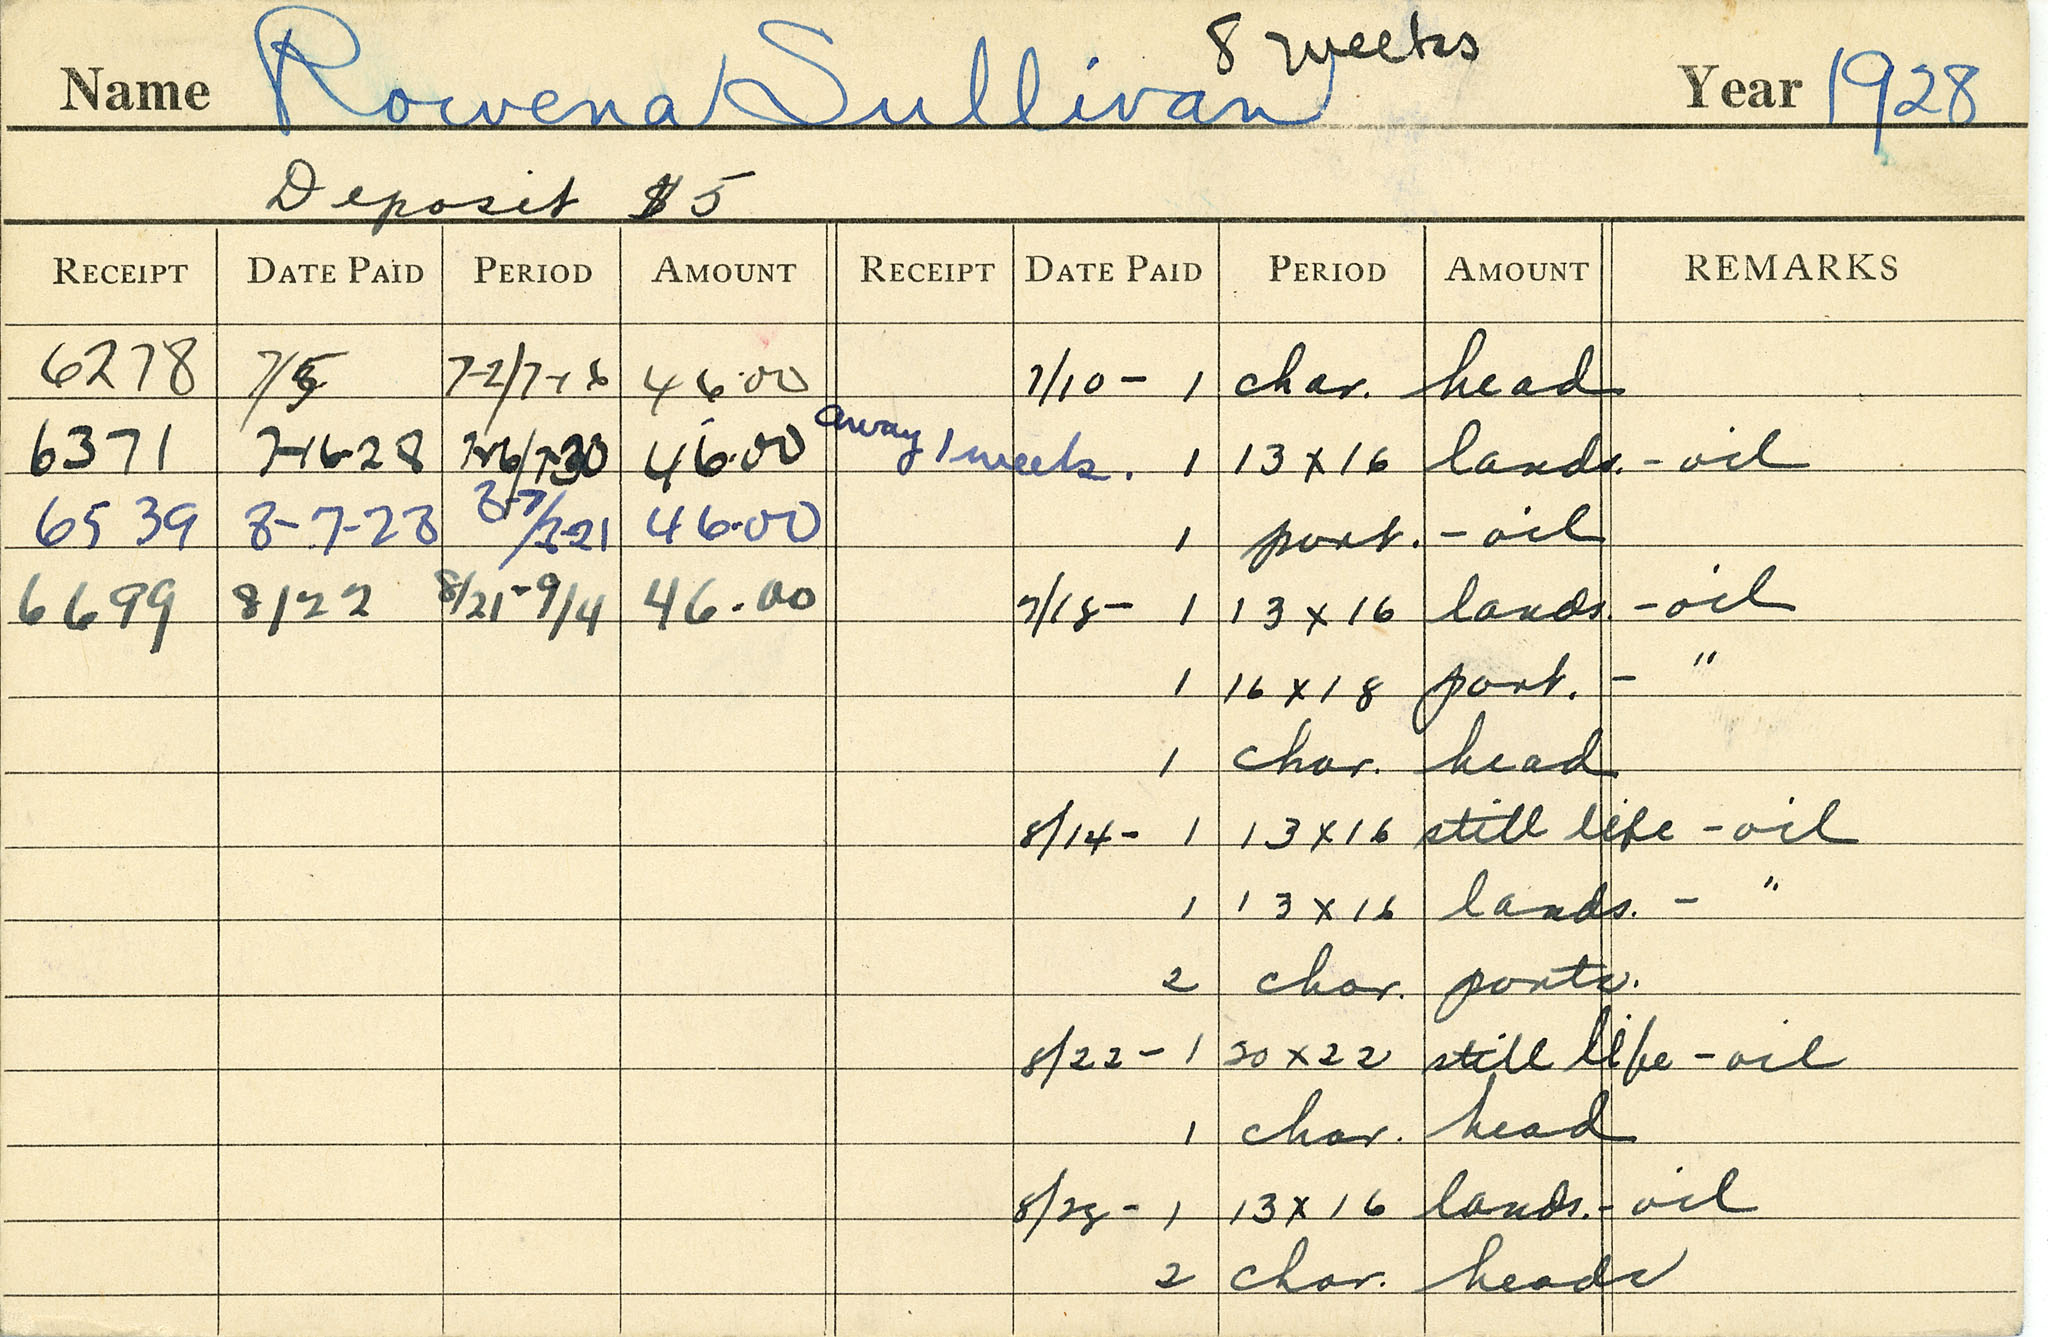 Name Rowena Sullivan 8 weeks Year 1928
Deposit $5
RECEIPT DATE PAID PERIOD AMOUNT RECEIPT DATE PAID PERIOD AMOUNT REMARKS
6278 7/5 7-2/7-16 46.00 7/10 - 1 char. head
6371 7-16-28 7-16/7-30 46.00 away 1 week. 1 13 x 16 lands. - oil
6539 8-7-28 8-7/8-21 46.00 1 port. - oil
6699 8/22 8/21-9/4 46.00 7/18 - 1 13 x 16 lands. - oil
1 16 x 18 port. - "
1 char. head
8/14 - 1 13 x 16 still life - oil
1 13 x 16 lands. - "
2 char. ports.
8/22 - 1 20 x 22 still life - oil
1 char. head
8/28 - 1 13 x 16 lands. - oil
2 char. heads